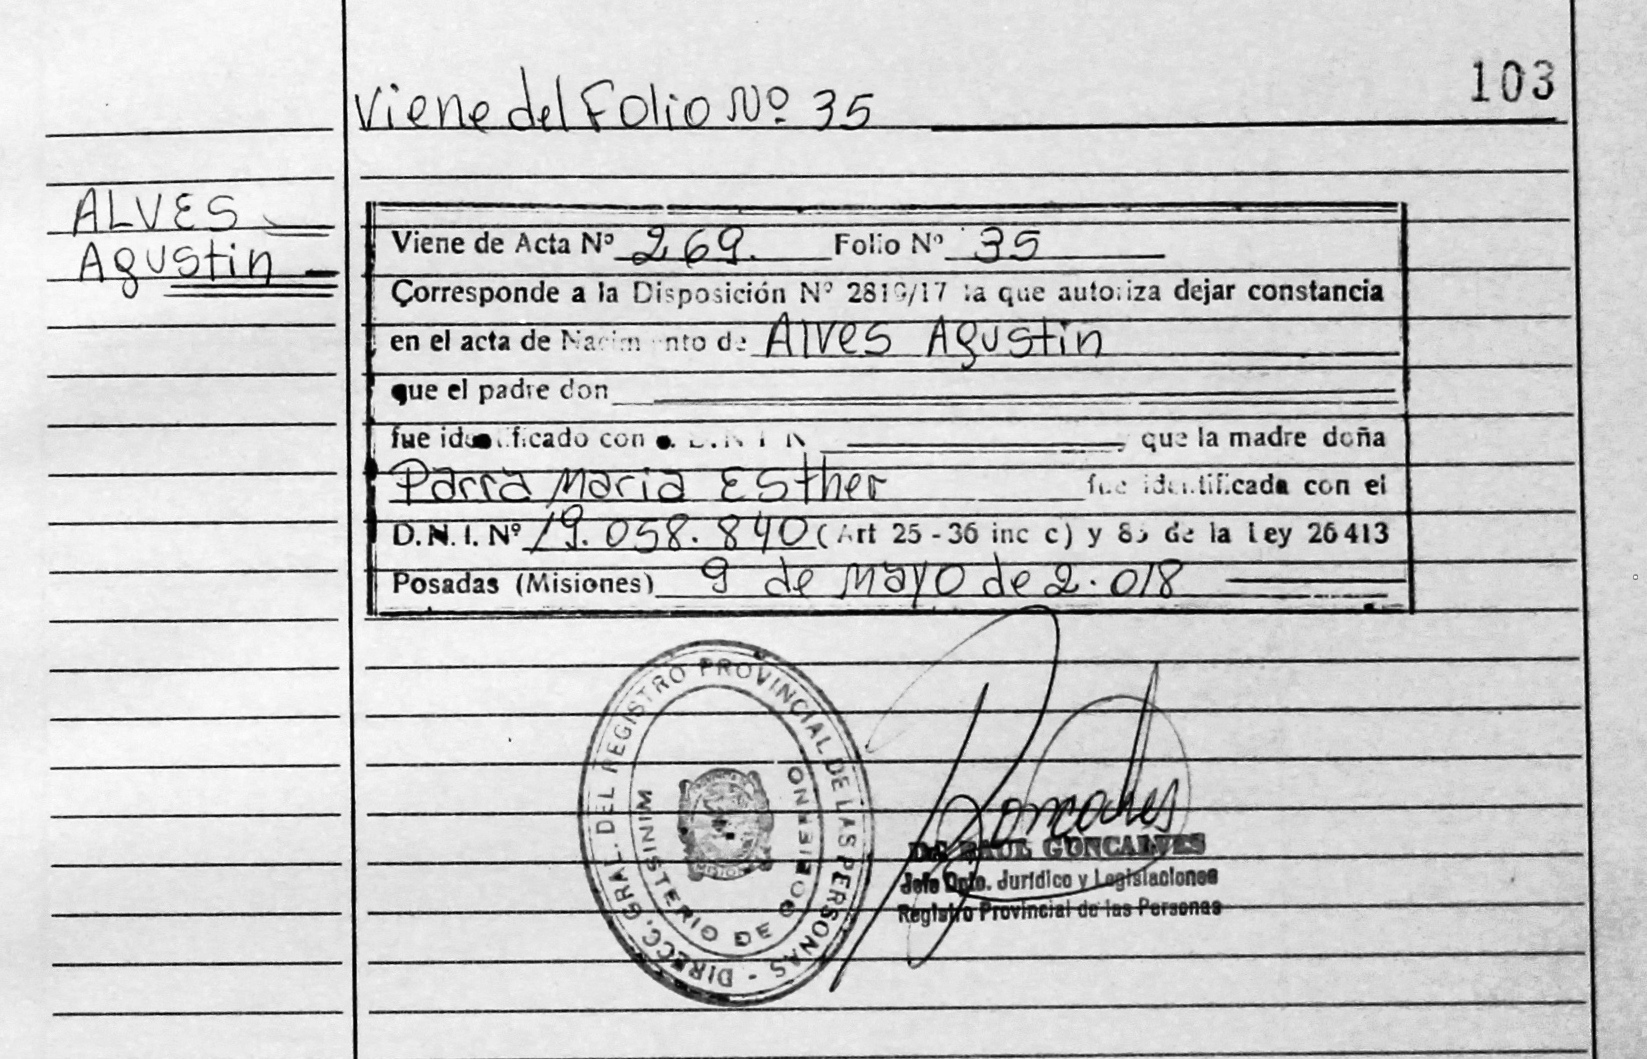 103
Viene del Folio Nº 35
ALVES
Agustin
Viene de Acta Nº 269. Folio Nº 35
Corresponde a la Disposición Nº 2819/17 la que autoriza dejar constancia
en el acta de Nacimiento de Alves Agustin
que el padre don
fue identificado con D.N.I. N , que la madre doña
Parra Maria Esther fue identificada con el
D.N.I. Nº 19.058.840 (Art 25 - 36 inc c) y 85 de la Ley 26413
Posadas (Misiones) 9 de Mayo de 2.018
DIRECC. GRAL. DEL REGISTRO PROVINCIAL DE LAS PERSONAS -
MINISTERIO DE GOBIERNO
Goncalves
Dr. RAUL GONCALVES
Jefe Dpto. Jurídico y Legislaciones
Registro Provincial de las Personas